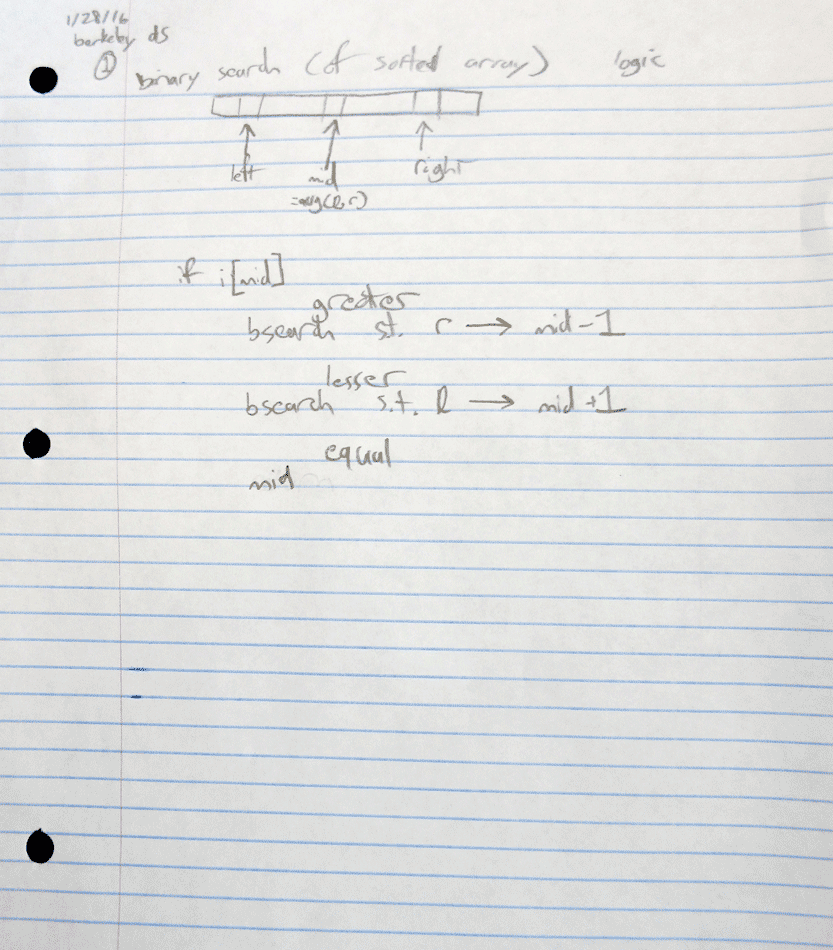 1/28/16
berkeley ds
① binary search (of sorted array) logic
left mid right
=avg(l,r)
if i[mid]
greater
bsearch st. r → mid-1
lesser
bsearch s.t. l → mid+1
equal
mid